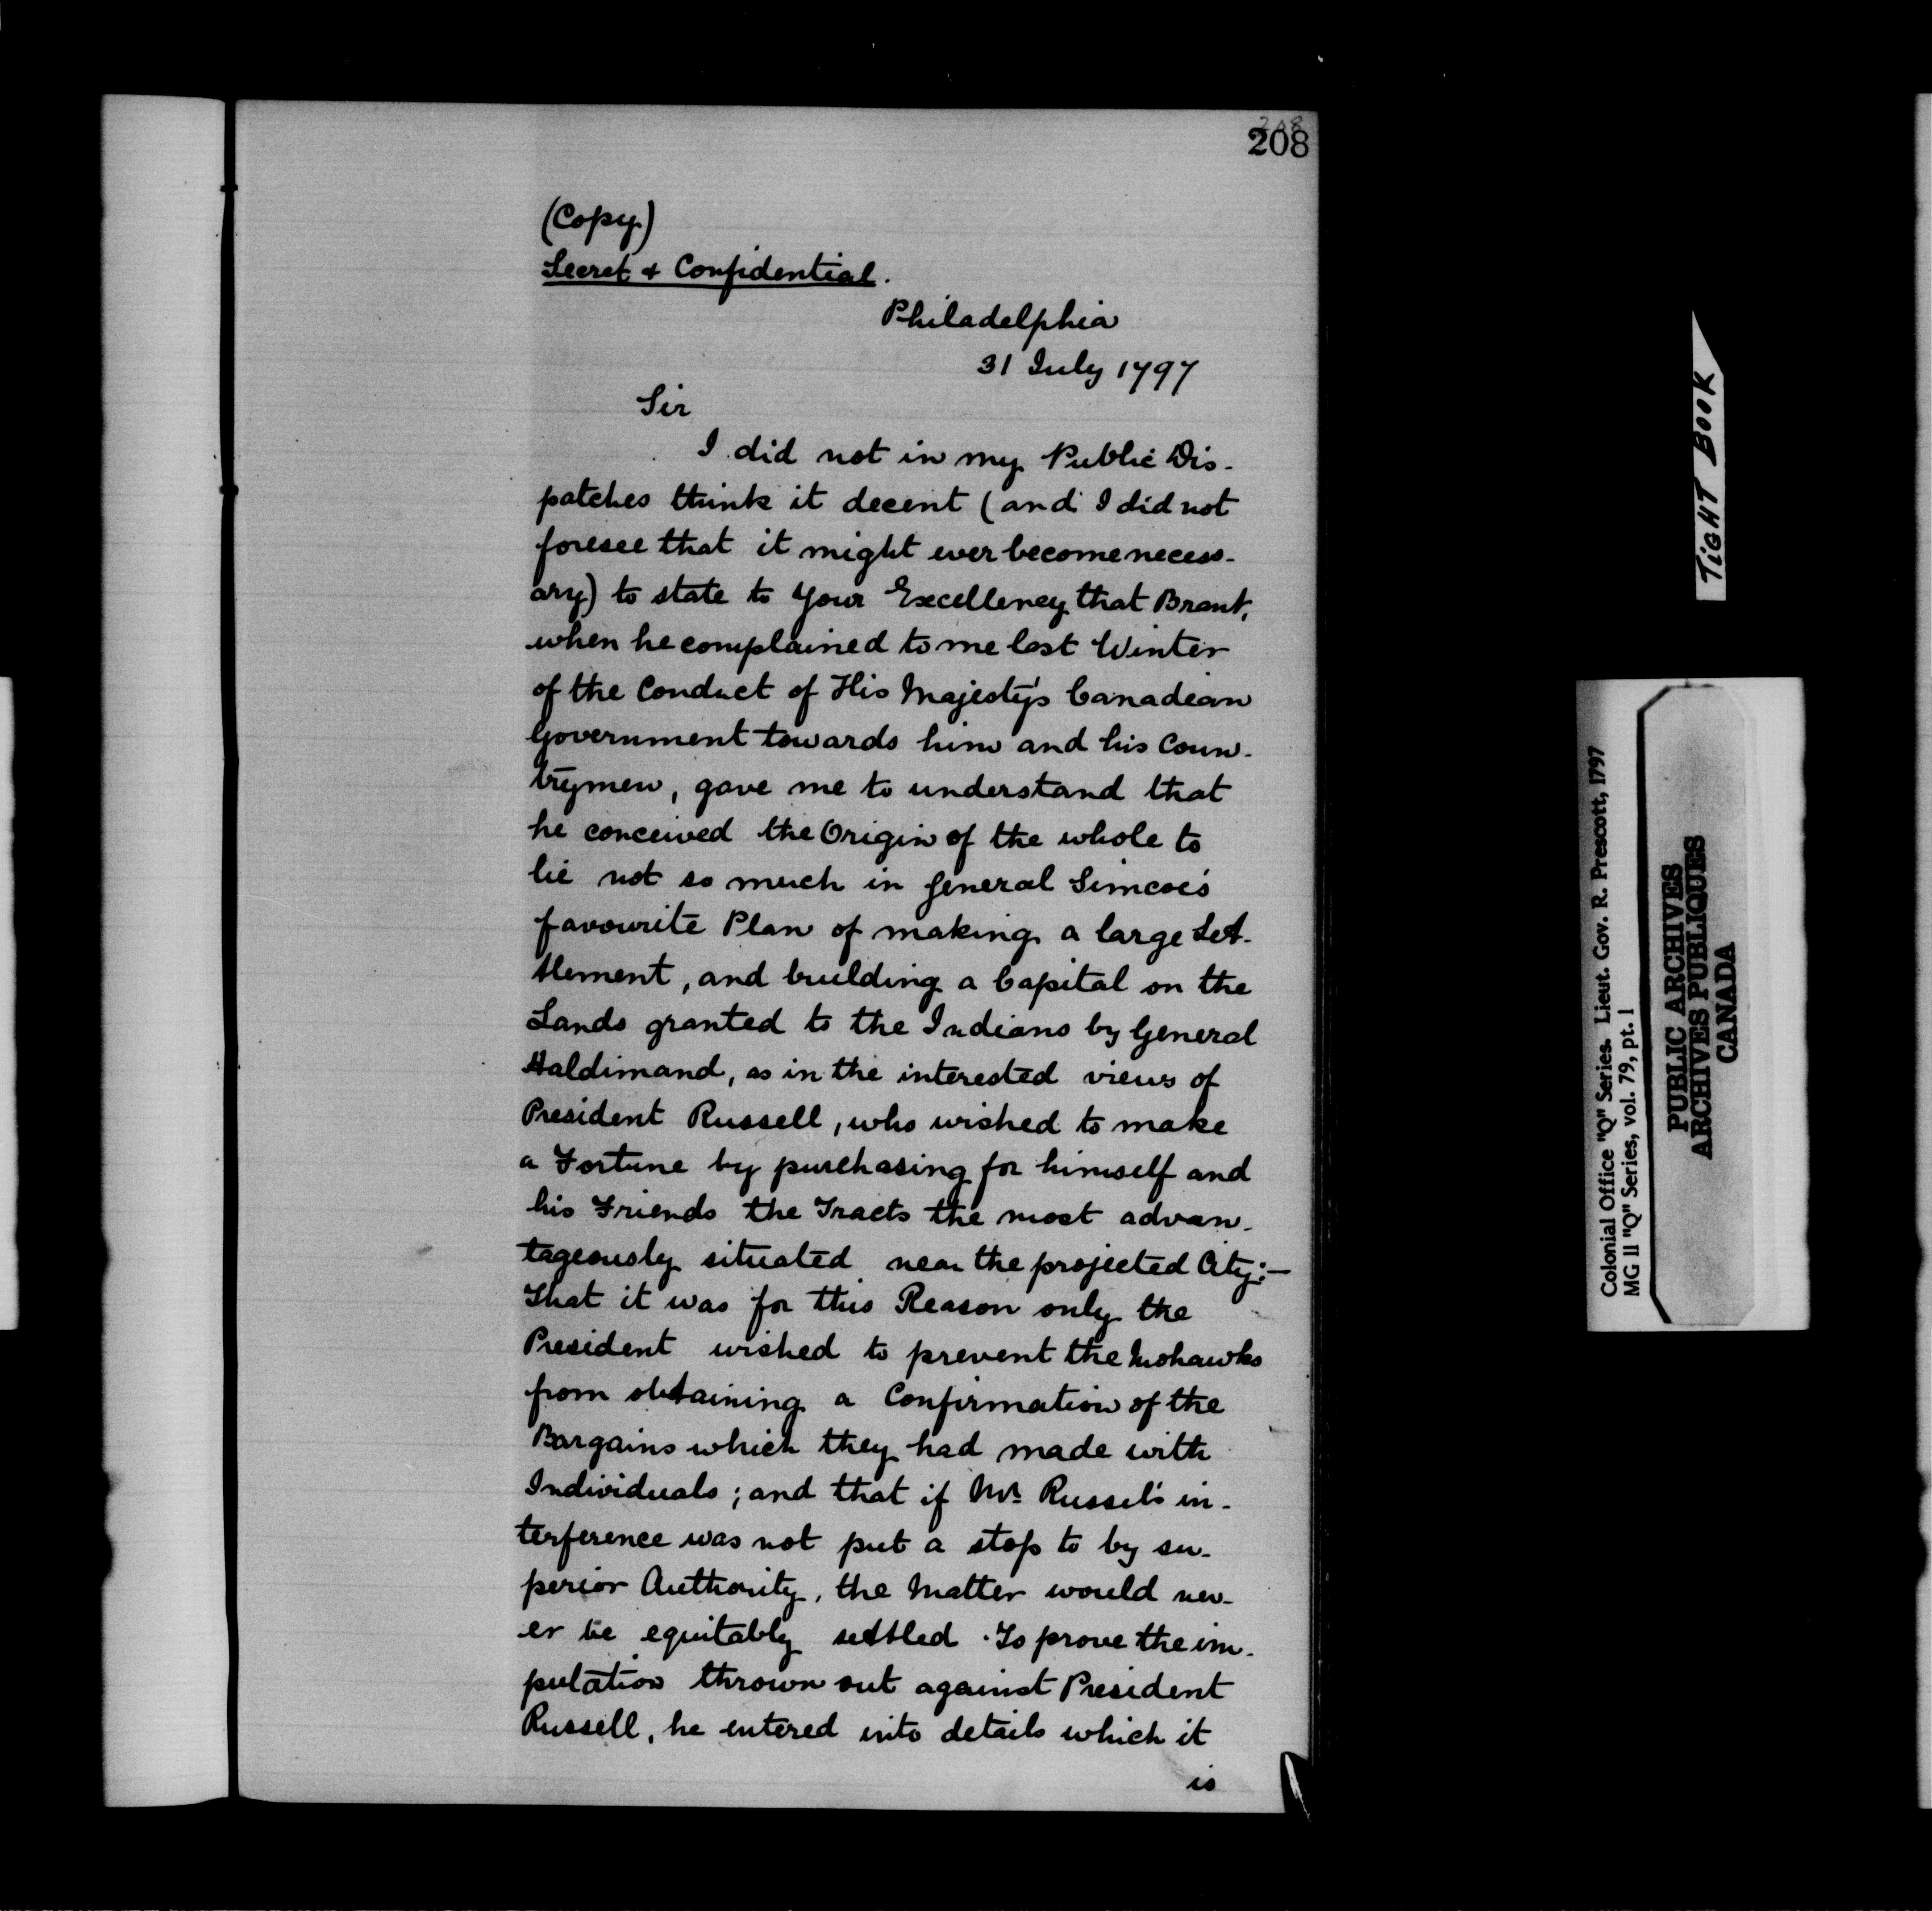 208
208
(Copy.)
Secret & Confidential.
Philadelphia
31 July 1797
Sir
I did not in my Public Dis-
patches think it decent (and I did not
foresee that it might ever become necess-
ary) to state to Your Excellency that Brant,
when he complained to me last Winter
of the Conduct of His Majesty's Canadian
Government towards him and his Coun-
trymen, gave me to understand that
he conceived the Origin of the whole to
lie not so much in General Simcoe's
favourite Plan of making a large Set-
tlement, and building a Capital on the
Lands granted to the Indians by General
Haldimand, as in the interested views of
President Russell, who wished to make
a Fortune by purchasing for himself and
his Friends the Tracts the most advan-
tageously situated near the projected City;—
That it was for this Reason only the
President wished to prevent the Mohawks
from obtaining a Confirmation of the
Bargains which they had made with
Individuals; and that if Mr. Russel's in-
terference was not put a stop to by su-
perior Authority, the Matter would nev-
er be equitably settled. To prove the im-
putation thrown out against President
Russell, he entered into details which it
is
TIGHT BOOK
Colonial Office "Q" Series. Lieut. Gov. R. Prescott, 1797
MG 11 "Q" Series, vol. 79, pt. 1
PUBLIC ARCHIVES
ARCHIVES PUBLIQUES
CANADA